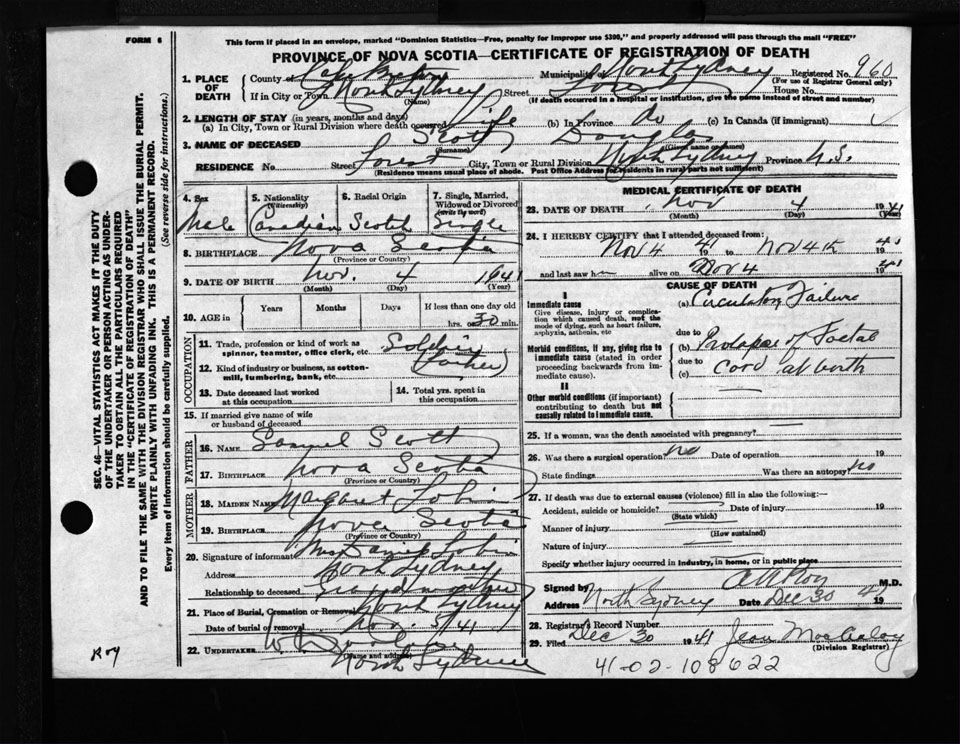 FORM 6
This form if placed in an envelope, marked "Dominion Statistics—Free, penalty for improper use $300," and properly addressed will pass through the mail "FREE"
PROVINCE OF NOVA SCOTIA—CERTIFICATE OF REGISTRATION OF DEATH
SEC. 46—VITAL STATISTICS ACT MAKES IT THE DUTY
OF THE UNDERTAKER OR PERSON ACTING AS UNDER-
TAKER TO OBTAIN ALL THE PARTICULARS REQUIRED
IN THE "CERTIFICATE OF REGISTRATION OF DEATH"
AND TO FILE THE SAME WITH THE DIVISION REGISTRAR WHO SHALL ISSUE THE BURIAL PERMIT.
WRITE PLAINLY WITH UNFADING INK. THIS IS A PERMANENT RECORD.
Every item of information should be carefully supplied. (See reverse side for instructions.)
Roy
1. PLACE OF DEATH County of Cape Breton Municipality of North Sydney Registered No. 960
(For use of Registrar General only)
If in City or Town North Sydney Street Forest House No.
(Name) (If death occurred in a hospital or institution, give the name instead of street and number)
2. LENGTH OF STAY (in years, months and days)
(a) In City, Town or Rural Division where death occurred Life (b) In Province do (c) In Canada (if immigrant)
3. NAME OF DECEASED Scott Douglas
(Surname) (Given name or names)
RESIDENCE No. Street Forest City, Town or Rural Division North Sydney Province N.S.
(Residence means usual place of abode. Post Office Address for residents in rural parts not sufficient)
4. Sex 5. Nationality (Citizenship) 6. Racial Origin 7. Single, Married, Widowed or Divorced (write the word)
Male Canadian Scotch Single
8. BIRTHPLACE Nova Scotia
(Province or Country)
9. DATE OF BIRTH Nov. 4 1941
(Month) (Day) (Year)
10. AGE in Years Months Days If less than one day old
hrs. or 30 min.
OCCUPATION
11. Trade, profession or kind of work as spinner, teamster, office clerk, etc. Soldier
12. Kind of industry or business, as cotton-mill, lumbering, bank, etc. (Father)
13. Date deceased last worked at this occupation 14. Total yrs. spent in this occupation
15. If married give name of wife or husband of deceased
FATHER
16. NAME Samuel Scott
17. BIRTHPLACE Nova Scotia
(Province or Country)
MOTHER
18. MAIDEN NAME Margaret Tobin
19. BIRTHPLACE Nova Scotia
(Province or Country)
20. Signature of informant Mrs Daniel Tobin
Address North Sydney
Relationship to deceased Grandmother
21. Place of Burial, Cremation or Removal North Sydney
Date of burial or removal Nov. 5/41
22. UNDERTAKER
(Name and address)
North Sydney
MEDICAL CERTIFICATE OF DEATH
23. DATE OF DEATH Nov 4 1941
(Month) (Day)
24. I HEREBY CERTIFY that I attended deceased from:
Nov 4 1941 to Nov 4th 1941
and last saw him alive on Nov 4 1941
CAUSE OF DEATH
I
Immediate cause (a) Circulatory Failure
Give disease, injury or complication which caused death, not the mode of dying, such as heart failure, asphyxia, asthenia, etc
due to
Morbid conditions, if any, giving rise to immediate cause (stated in order proceeding backwards from immediate cause). (b) Prolapse of Foetal
due to
(c) cord at birth
II
Other morbid conditions (if important) contributing to death but not causally related to immediate cause.
25. If a woman, was the death associated with pregnancy?
26. Was there a surgical operation? No Date of operation 19
State findings Was there an autopsy? No
27. If death was due to external causes (violence) fill in also the following:—
Accident, suicide or homicide? Date of injury 19
(State which)
Manner of injury
(How sustained)
Nature of injury
Specify whether injury occurred in industry, in home, or in public place
Signed by M.D.
Address North Sydney Date Dec 30 1941
28. Registrar's Record Number
29. Filed Dec 30 1941
(Division Registrar)
41-02-108622